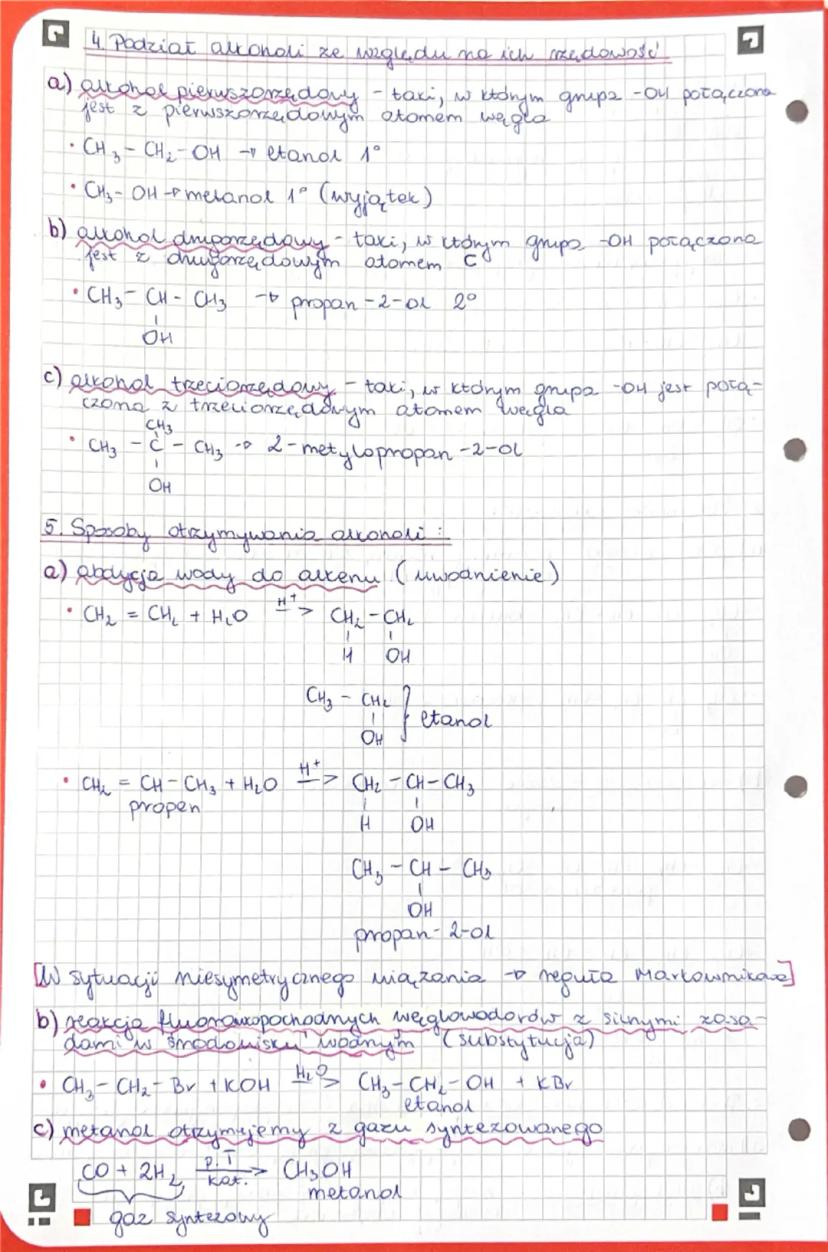 4. Podział alkoholi ze względu na ich rzędowość
a) alkohol pierwszorzędowy - taki, w którym grupa -OH połączona
jest z pierwszorzędowym atomem węgla
• CH3 - CH2 - OH → etanol 1°
• CH3 - OH → metanol 1° (wyjątek)
b) alkohol drugorzędowy - taki, w którym grupa -OH połączona
jest z drugorzędowym atomem C
• CH3 - CH - CH3 → propan-2-ol 2°
OH
c) alkohol trzeciorzędowy - taki, w którym grupa -OH jest połą-
czona z trzeciorzędowym atomem węgla
CH3
• CH3 - C - CH3 → 2-metylopropan-2-ol
OH
5. Sposoby otrzymywania alkoholi:
a) abdycja wody do alkenu (uwodnienie)
• CH2 = CH2 + H2O H+> CH2 - CH2
H OH
CH3 - CH2 } etanol
OH
• CH2 = CH - CH3 + H2O H+> CH2 - CH - CH3
propen
H OH
CH3 - CH - CH3
OH
propan-2-ol
[W sytuacji niesymetrycznego wiązania → reguła Markownikowa]
b) reakcja fluorowcopochodnych węglowodorów z silnymi zasa-
dami w środowisku wodnym (substytucja)
• CH3 - CH2 - Br + KOH H2O> CH3 - CH2 - OH + KBr
etanol
c) metanol otrzymujemy z gazu syntezowanego
CO + 2H2 p.T kat.> CH3OH
metanol
gaz syntezowy